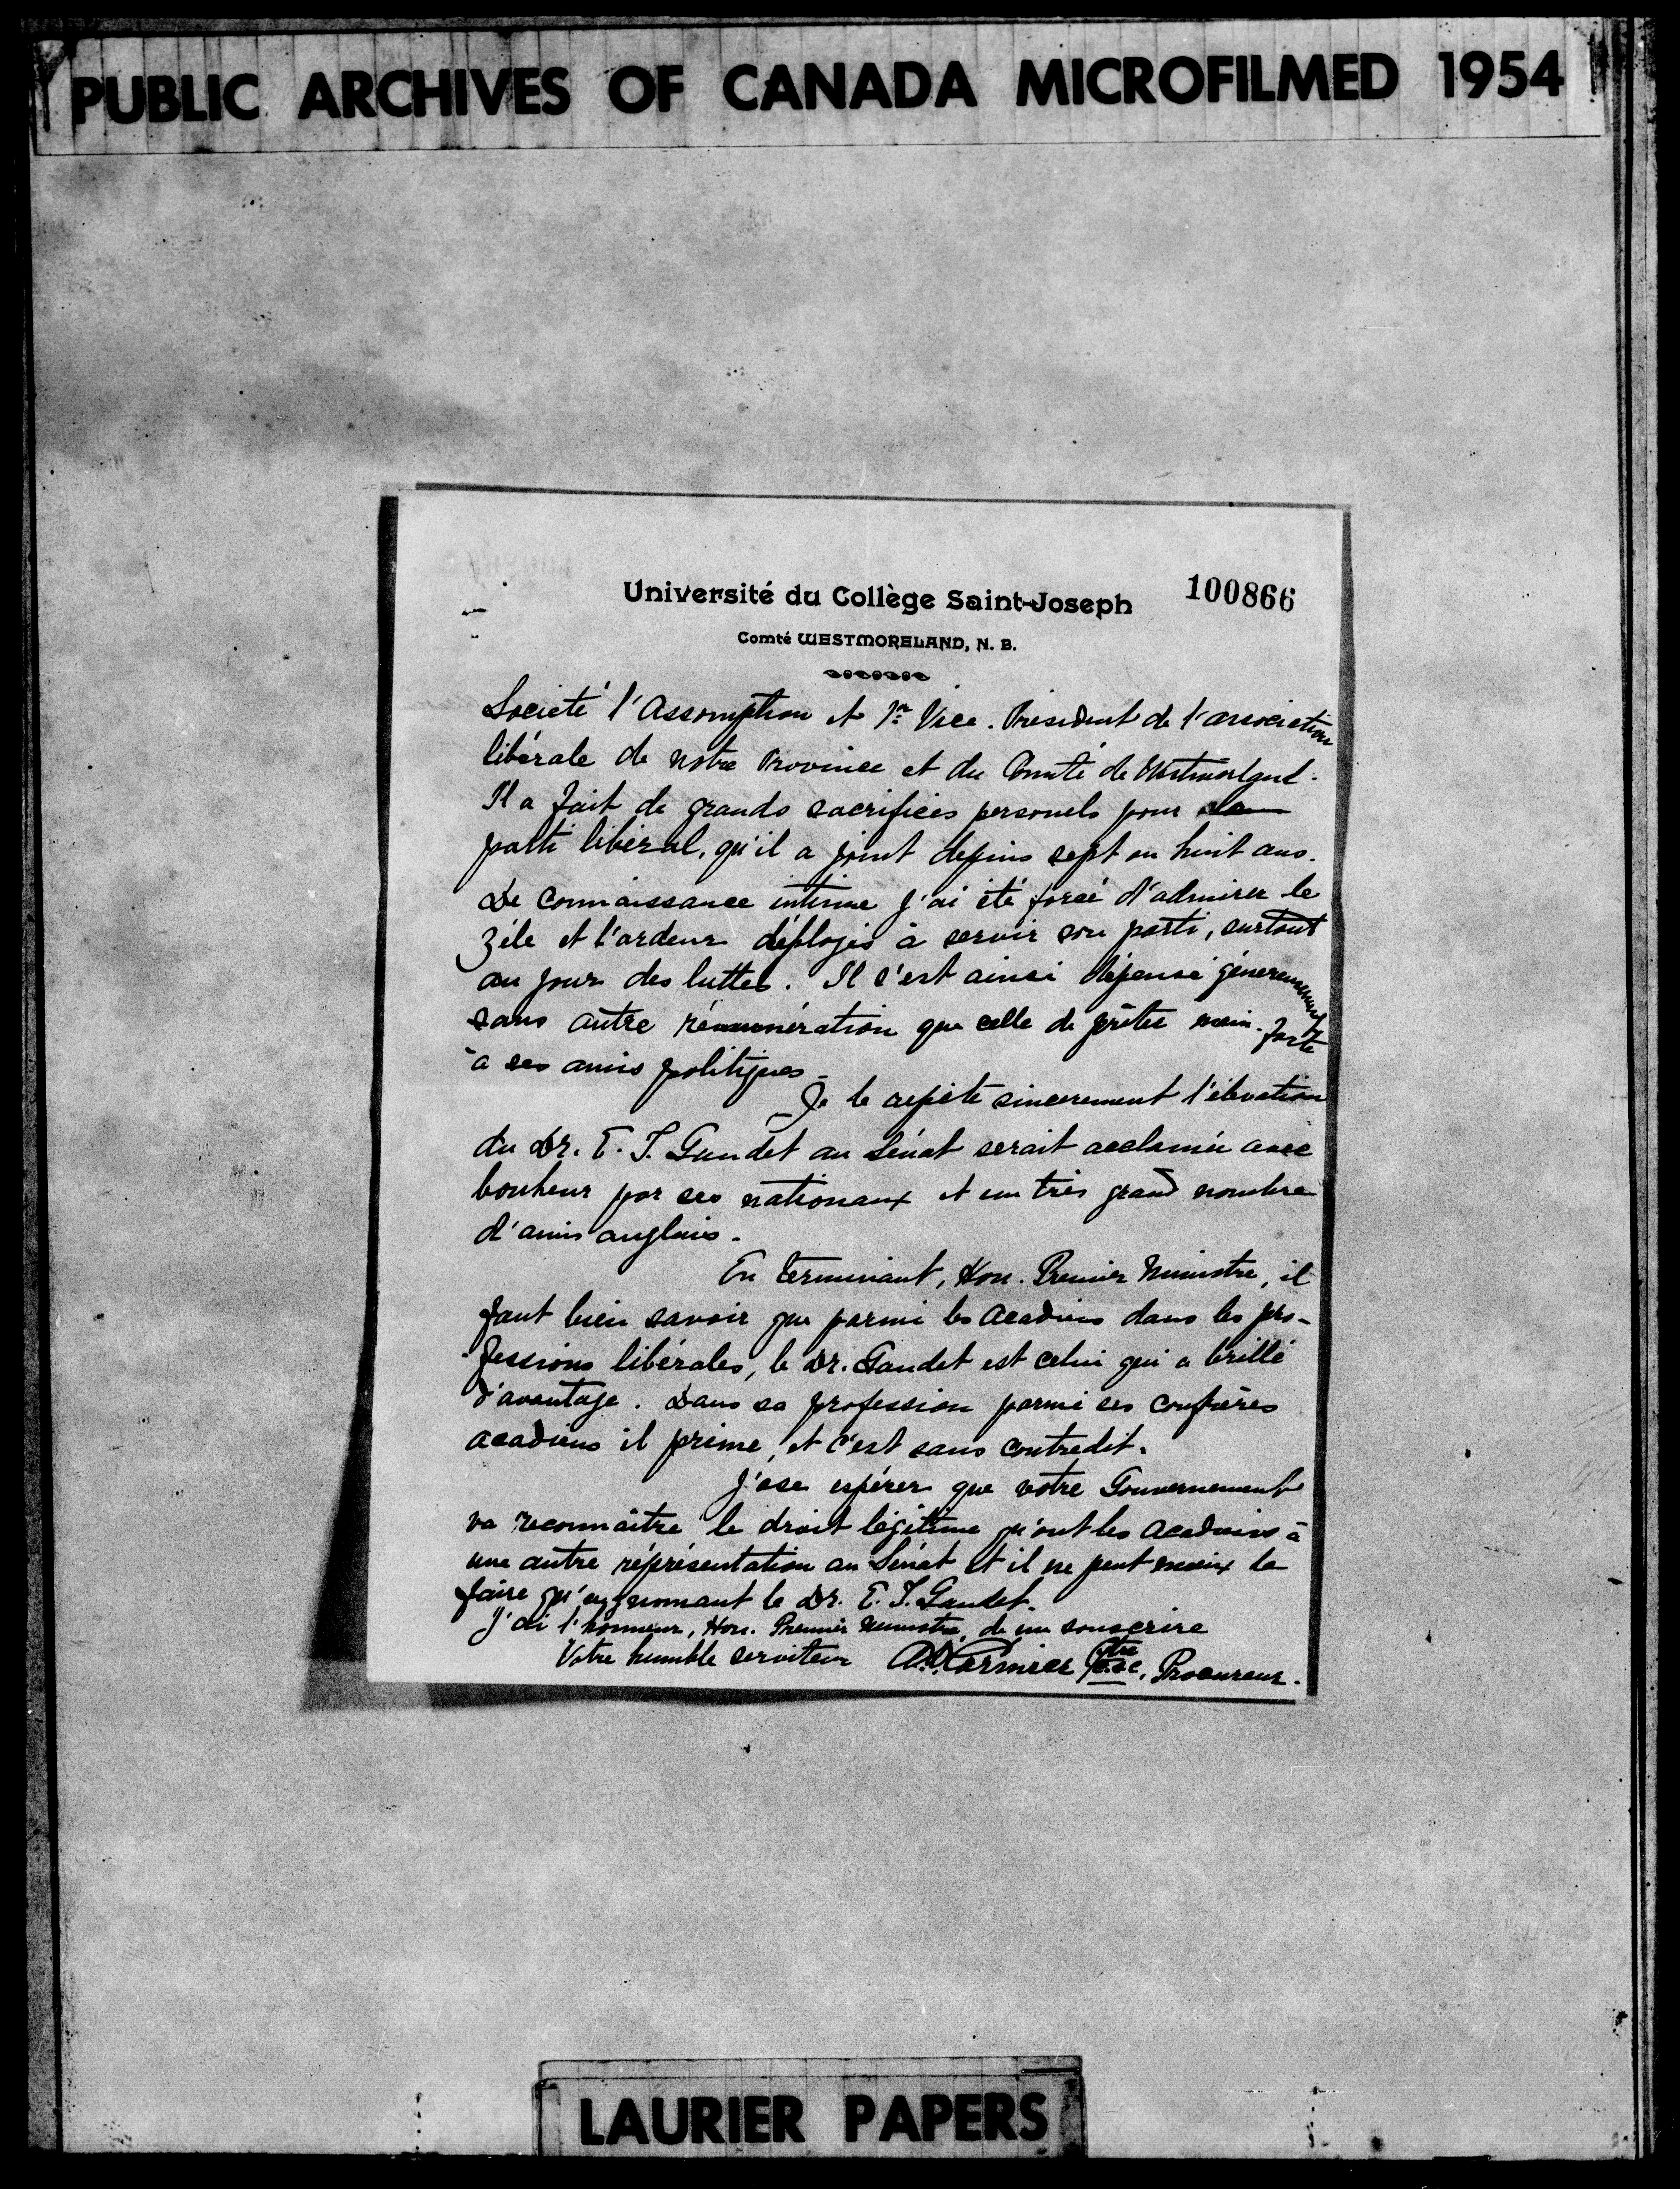 PUBLIC ARCHIVES OF CANADA MICROFILMED 1954
Université du Collège Saint-Joseph 100866
Comté WESTMORELAND, N. B.
Société l'Assomption et 1er Vice. Président de l'association
libérale de notre Province et du Comté de Westmorland.
Il a fait de grands sacrifices personels pour le
parti libéral, qu'il a joint depuis sept ou huit ans.
De connaissance intime j'ai été forcé d'admirer le
zéle et l'ardeur déployés à servir son parti, surtout
au jour des luttes. Il s'est ainsi dépensé géneureusement
sans autre rémunération que celle de prêter main-forte
à ses amis politiques.
Je le repète sincerement l'élevation
du Dr. E. T. Gaudet au Sénat serait acclamée avec
bonheur par ses nationaux et un très grand nombre
d'amis anglais.
En terminant, Hon. Premier Ministre, il
faut bien savoir que parmi les Acadiens dans les pro-
fessions libérales, le Dr. Gaudet est celui qui a brillé
d'avantage. Dans sa profession parmi ses confrères
acadiens il prime, et c'est sans contredit.
J'ose espérer que votre Gouvernement
va reconnaître le droit légitime qu'ont les Acadiens à
une autre réprésentation au Sénat et il ne peut mieux le
faire qu'en nomant le Dr. E. T. Gaudet.
J'ai l'honneur, Hon. Premier Ministre, de me souscrire
Votre humble serviteur Cormier Ptre c.s.c. Procureur.
LAURIER PAPERS